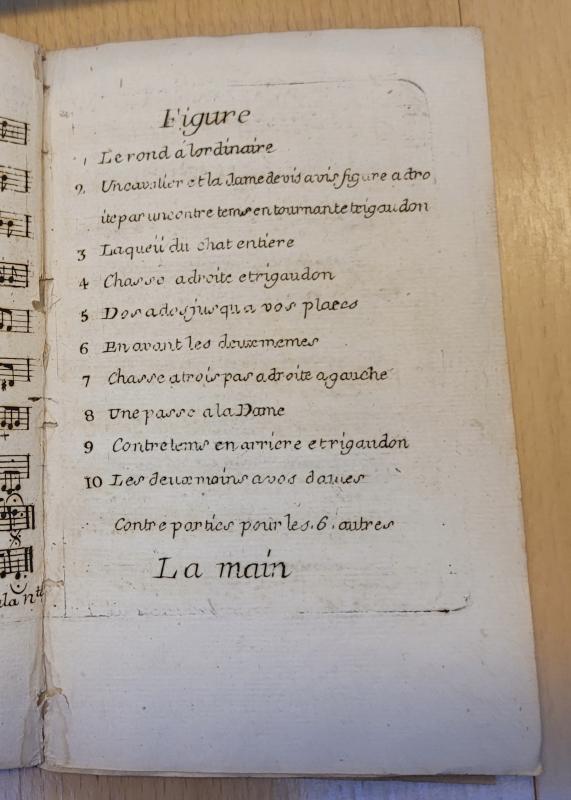 Figure
1 Le rond á lordinaire
2 Uncavalier et la dame devis avis figure a dro
ite par un contre tems en tournant et rigaudon
3 Laqueüi du chat entiere
4 Chasse adroite etrigaudon
5 Dos ados jusqua vos places
6 En avant les deux memes
7 Chasse atrois pas adroite agauche
8 Une passe ala Dame
9 Contretems en arriere etrigaudon
10 Les deux mains avos dames
Contre parties pour les .6. autres
La main
ela nte